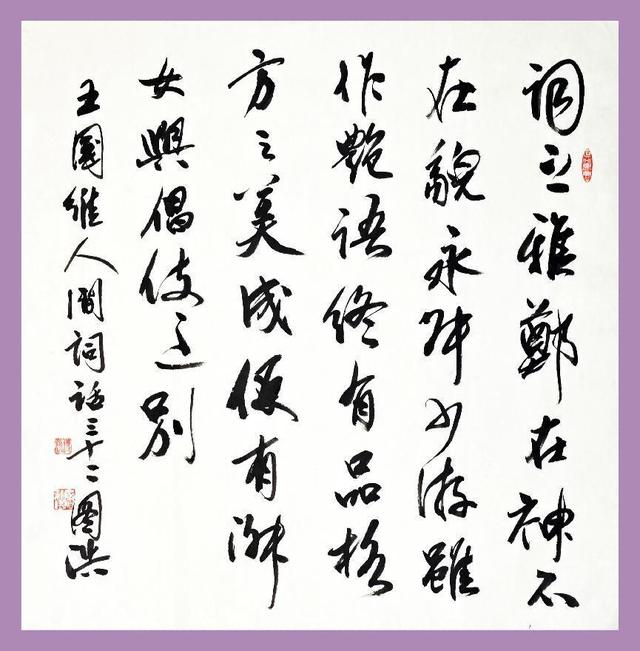 詞之雅鄭在神不
在貌永叔少游雖
作艷語終有品格
方之美成便有淑
女與倡伎之別
王國維人間詞話三十二